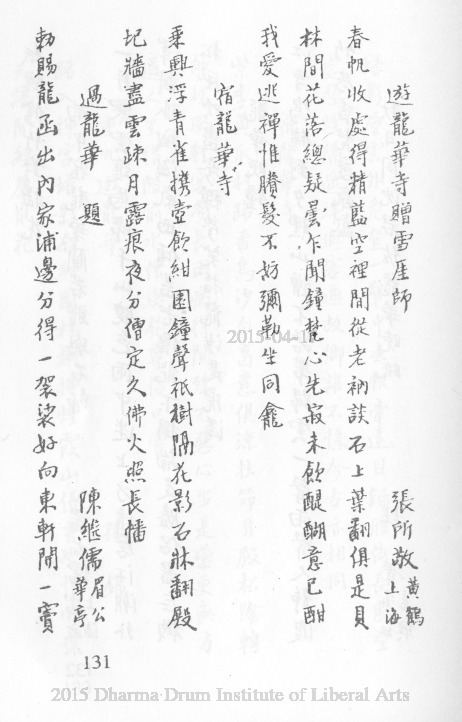 遊龍華寺贈雪崖師
張所敬 黃鶴 上海
春帆收處得精藍空裡閒從老衲談石上葉翻俱是貝
林間花落總疑曇乍聞鐘梵心先寂未飲醍醐意已酣
我愛逃禪惟賸髮不妨彌勒坐同龕
宿龍華寺
乘興浮青雀携壺飲紺園鐘聲祇樹隔花影石牀翻殿
圮牆盡雲疎月露痕夜分僧定久佛火照長幡
過龍華 題
陳繼儒 眉公 華亭
勅賜龍函出內家浦邊分得一袈裟好向東軒開一竇
131
2015-04-1
2015 Dharma Drum Institute of Liberal Arts